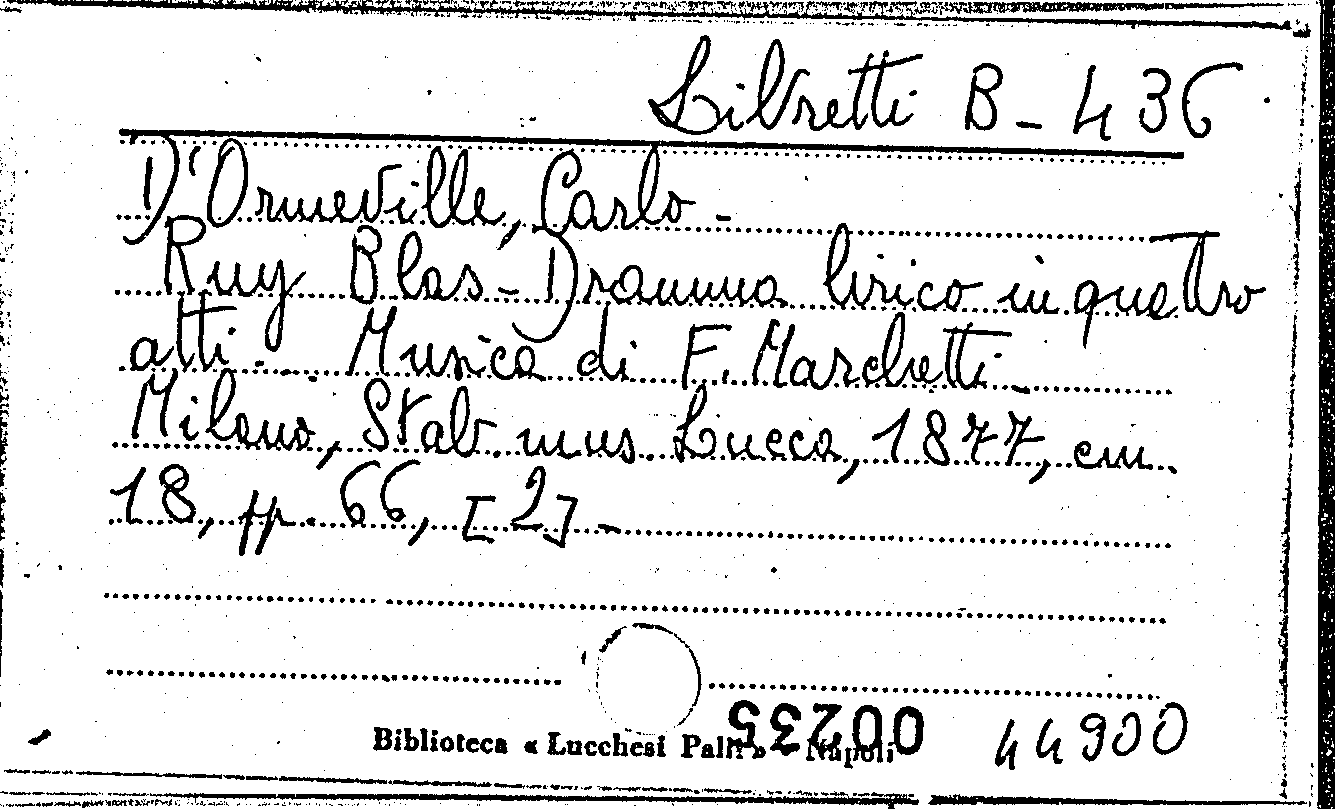 Libretti B - 436
D'Ormeville, Carlo -
Ruy Blas - Dramma lirico in quattro
atti - Musica di F. Marchetti -
Milano, Stab. mus. Lucca, 1877, cm.
18, pp. 66, [2] -
00235
Biblioteca « Lucchesi Palli » - Napoli
44900